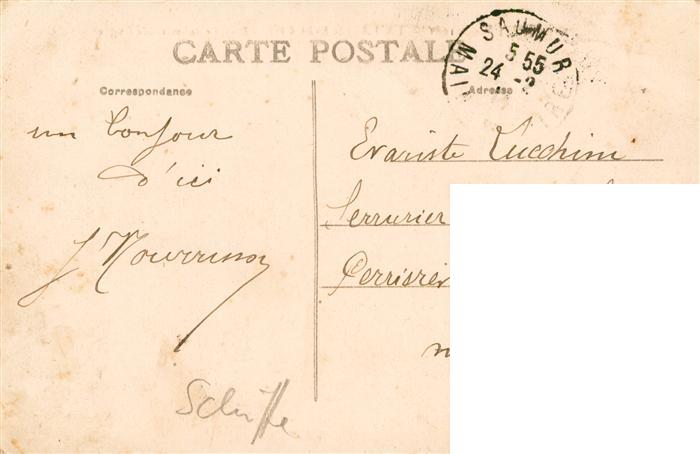 CARTE POSTALE
Correspondance
Adresse
SAUMUR
5 55
24 -2
MAI
un bonjour
d'ici
J Nourrisson
Evariste Lucchini
Serrurier
Perrisier
Schiffe